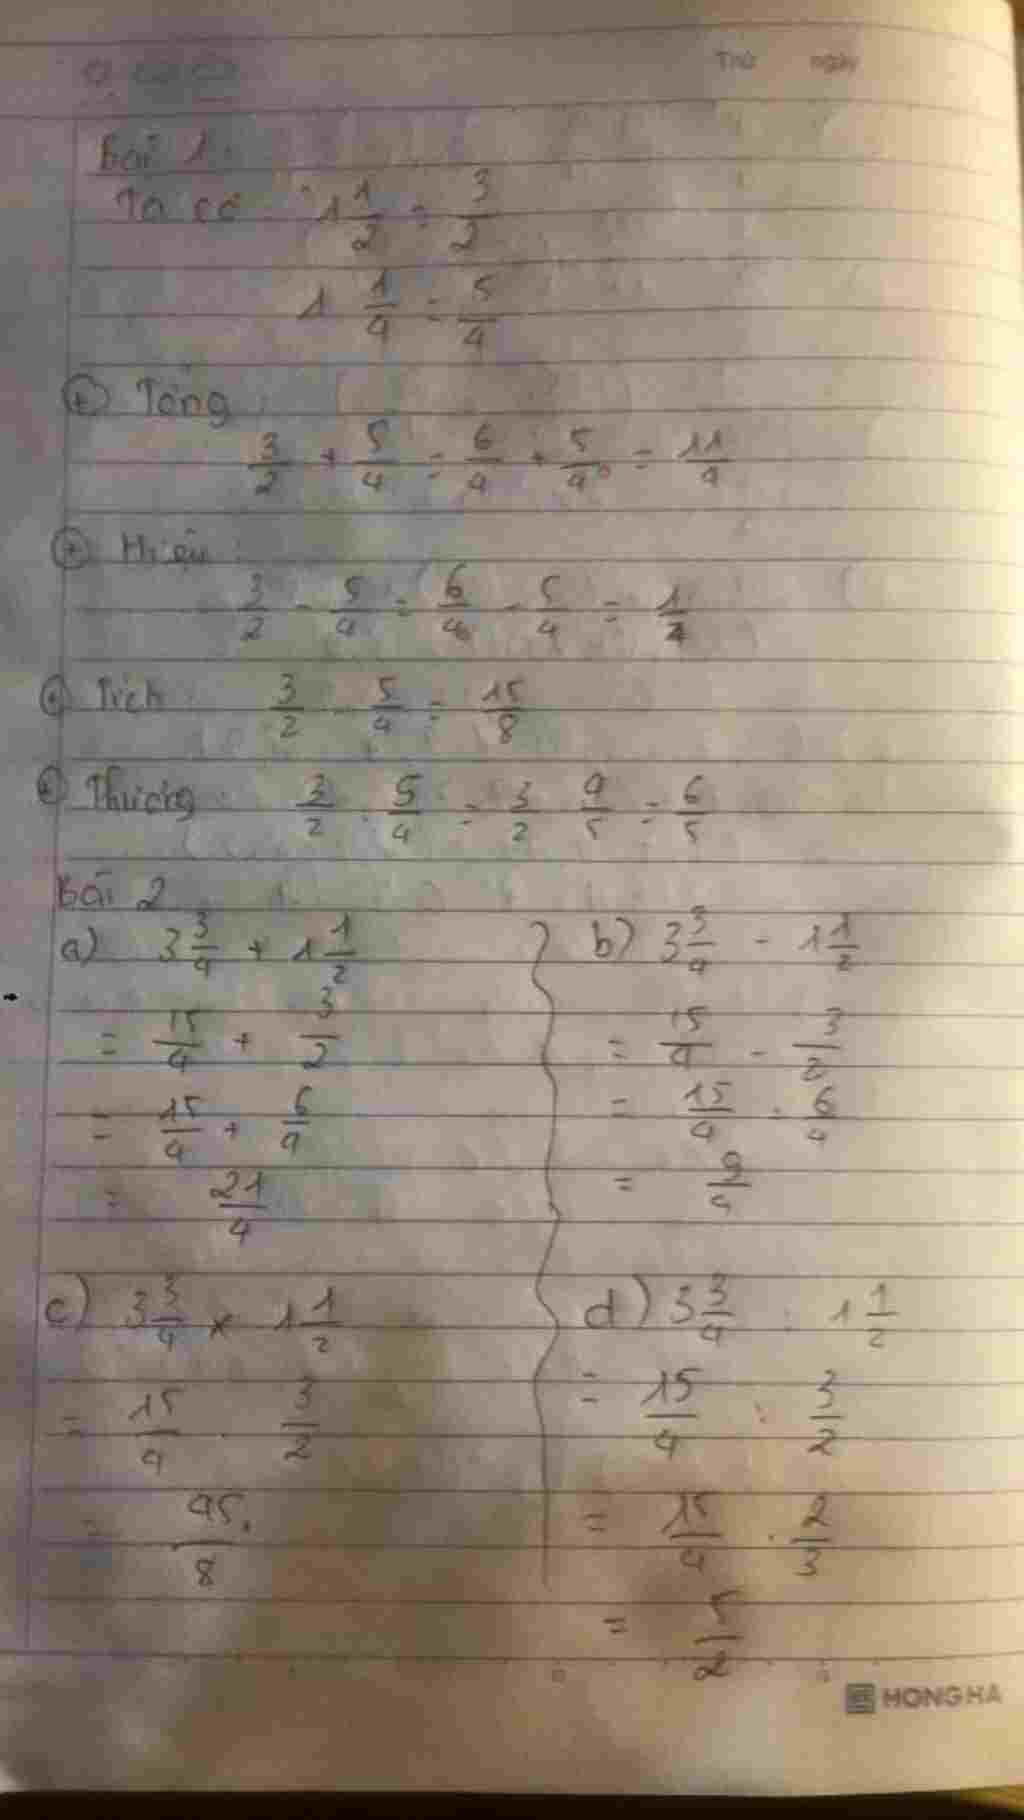 Thứ ngày
Bài 1:
Ta có 1 1/2 = 3/2
1 1/4 = 5/4
+ Tổng:
3/2 + 5/4 = 6/4 + 5/4 = 11/4
+ Hiệu:
3/2 - 5/4 = 6/4 - 5/4 = 1/4
+ Tích: 3/2 . 5/4 = 15/8
+ Thương: 3/2 : 5/4 = 3/2 . 4/5 = 6/5
Bài 2
a) 3 3/4 + 1 1/2
= 15/4 + 3/2
= 15/4 + 6/4
= 21/4
b) 3 3/4 - 1 1/2
= 15/4 - 3/2
= 15/4 - 6/4
= 9/4
c) 3 3/4 x 1 1/2
= 15/4 . 3/2
= 45/8
d) 3 3/4 : 1 1/2
= 15/4 : 3/2
= 15/4 . 2/3
= 5/2
HONG HA